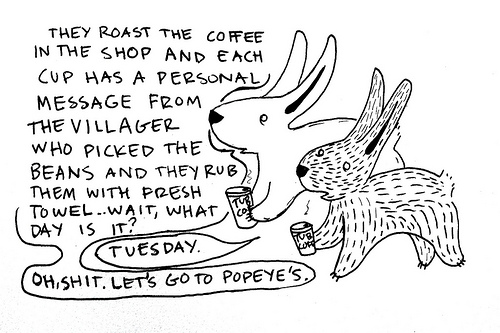 THEY ROAST THE COFFEE
IN THE SHOP AND EACH
CUP HAS A PERSONAL
MESSAGE FROM
THE VILLAGER
WHO PICKED THE
BEANS AND THEY RUB
THEM WITH FRESH
TOWEL..WAIT, WHAT
DAY IS IT?
TUESDAY.
OH, SHIT. LET'S GO TO POPEYE'S.
TUB
CUP